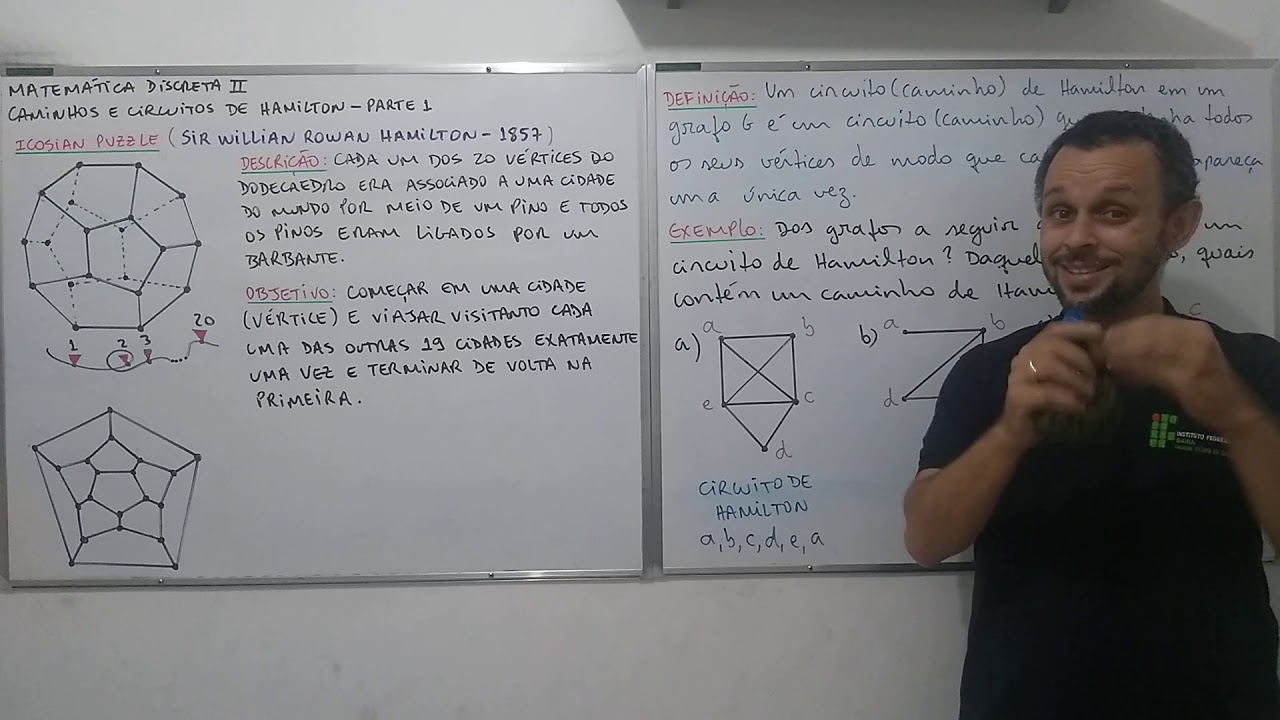 MATEMÁTICA DISCRETA II
CAMINHOS E CIRCUITOS DE HAMILTON - PARTE 1
ICOSIAN PUZZLE (SIR WILLIAN ROWAN HAMILTON - 1857)
DESCRIÇÃO: CADA UM DOS 20 VÉRTICES DO
DODECAEDRO ERA ASSOCIADO A UMA CIDADE
DO MUNDO POR MEIO DE UM PINO E TODOS
OS PINOS ERAM LIGADOS POR UM
BARBANTE.
OBJETIVO: COMEÇAR EM UMA CIDADE
(VÉRTICE) E VIAJAR VISITANTO CADA
UMA DAS OUTRAS 19 CIDADES EXATAMENTE
UMA VEZ E TERMINAR DE VOLTA NA
PRIMEIRA.
1 2 3 .... 20
DEFINIÇÃO: Um circuito (caminho) de Hamilton em um
grafo G é um circuito (caminho) todos
os seus vértices de modo que apareça
uma única vez.
EXEMPLO: Dos grafos a seguir um
circuito de Hamilton? quais
contém um caminho de
a) a b e c d
b) a b d c
CIRCUITO DE
HAMILTON
a, b, c, d, e, a
INSTITUTO FEDERAL
BAHIA